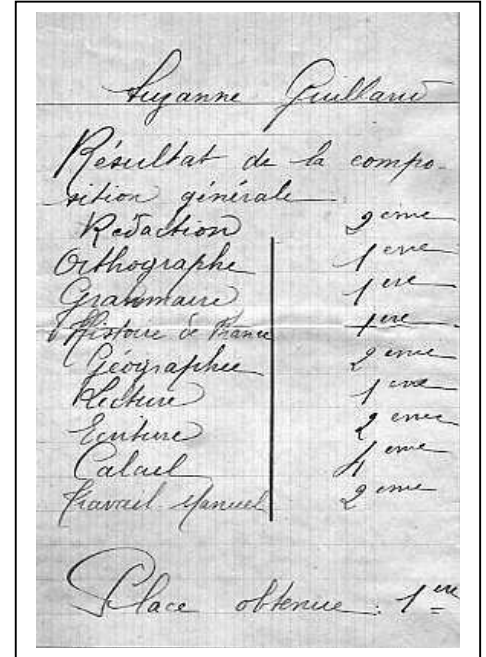 Suzanne Guillard
Résultat de la compo-
sition générale
Rédaction 2ème
Orthographe 1ère
Grammaire 1ère
Histoire de France 1ère
Géographie 2ème
Lecture 1ère
Ecriture 2ème
Calcul 4ème
Travail Manuel 2ème
Place obtenue : 1ère